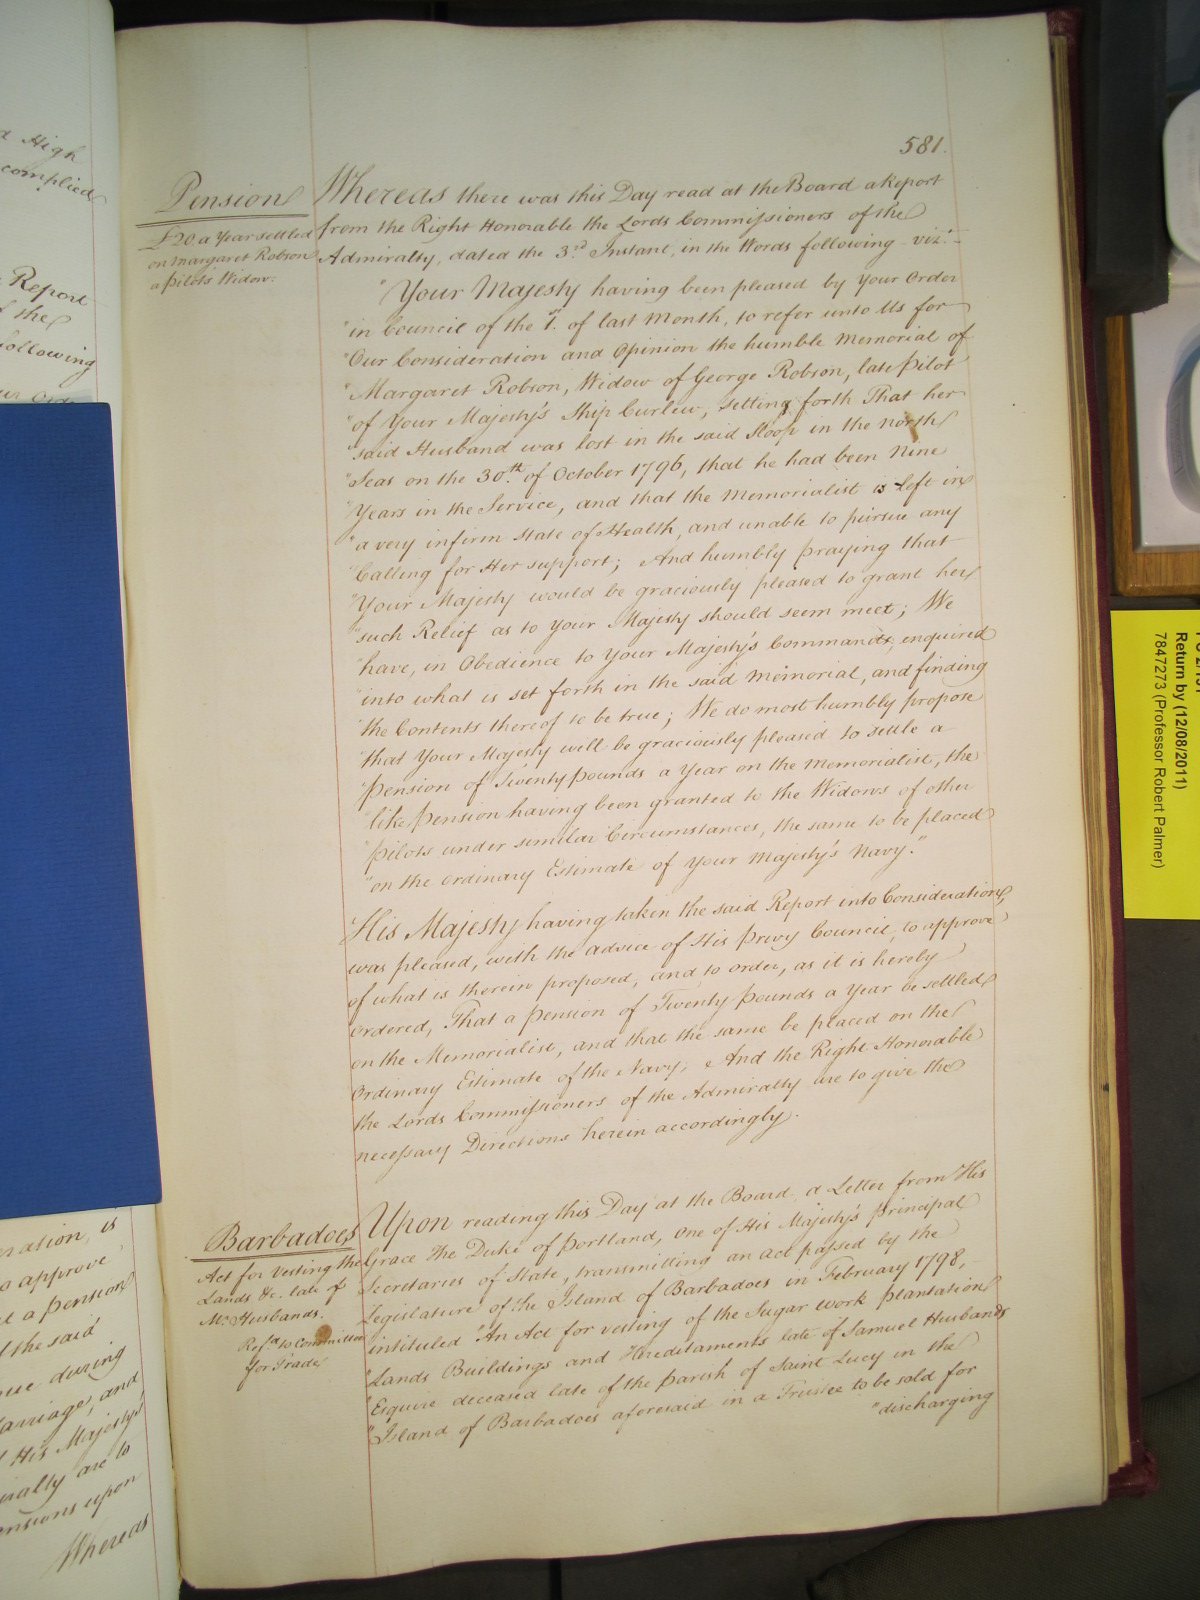 581.
Pension
£20 a Year settled
on Margaret Robson
a Pilot's Widow.
Whereas there was this Day read at the Board a Report
from the Right Honorable the Lords Commissioners of the
Admiralty, dated the 3rd Instant, in the Words following - viz.t -
"Your Majesty having been pleased by Your Order
"in Council of the 1st of last Month, to refer unto Us for
"Our Consideration and Opinion the humble Memorial of
"Margaret Robson, Widow of George Robson, late Pilot
"of Your Majesty's Ship Curlew, setting forth That her
"said Husband was lost in the said Sloop in the North
"Seas on the 30th of October 1796, that he had been Nine
"Years in the Service, and that the Memorialist is left in
"a very infirm State of Health, and unable to pursue any
"Calling for Her support; And humbly praying that
"Your Majesty would be graciously pleased to grant her
"such Relief as to Your Majesty should seem meet; We
"have, in Obedience to Your Majesty's Commands, enquired
"into what is set forth in the said Memorial, and finding
"the Contents thereof to be true; We do most humbly propose
"that Your Majesty will be graciously pleased to settle a
"Pension of Twenty Pounds a Year on the Memorialist, the
"like Pension having been granted to the Widows of other
"Pilots under similar Circumstances, the same to be placed
"on the Ordinary Estimate of Your Majesty's Navy."
His Majesty having taken the said Report into Consideration,
was pleased, with the advice of His Privy Council, to approve
of what is therein proposed, and to order, as it is hereby
Ordered, That a Pension of Twenty Pounds a Year be settled
on the Memorialist, and that the same be placed on the
Ordinary Estimate of the Navy, And the Right Honorable
the Lords Commissioners of the Admiralty are to give the
necessary Directions herein accordingly.
Barbadoes
Act for vesting the
Lands &c. late of
Mr Husbands.
Refd to Committee
for Trade
Upon reading this Day at the Board a Letter from His
Grace The Duke of Portland, one of His Majesty's Principal
Secretaries of State, transmitting an act passed by the
Legislature of the Island of Barbadoes in February 1798,
intituled "An Act for vesting of the Sugar Work Plantation
"Lands Buildings and Hereditaments late of Samuel Husbands
"Esquire deceased late of the Parish of Saint Lucy in the
"Island of Barbadoes aforesaid in a Trustee to be sold for
"discharging
High
complied
Report
the
following
is
to approve
a Pension
the said
during
Marriage, and
His Majesty's
are to
upon
Whereas
Return by (12/08/2011)
7847273 (Professor Robert Palmer)